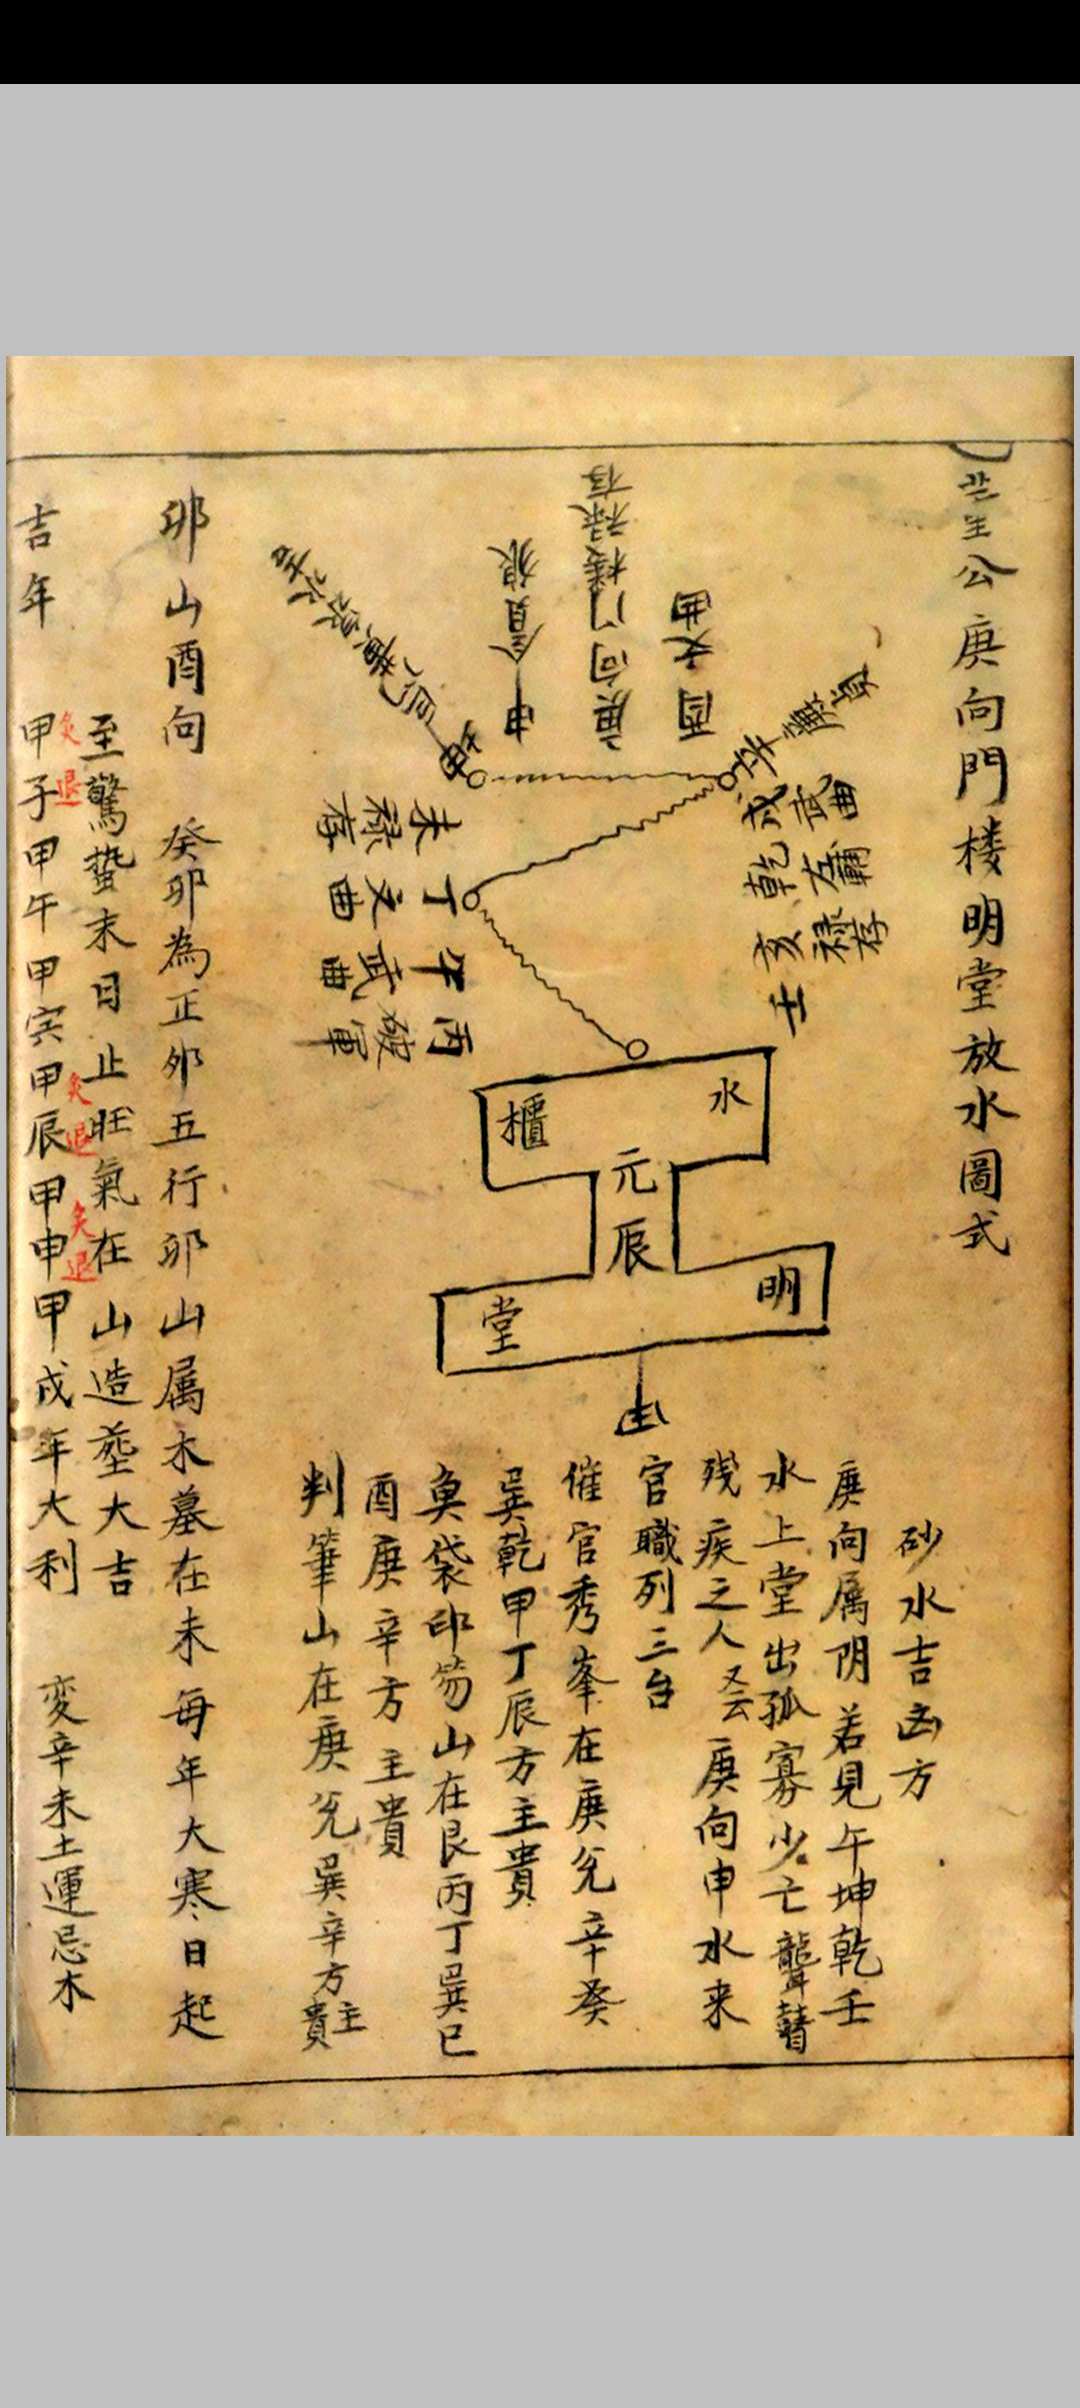 公庚向門楼明堂放水圖式
庚向門楼禄存
酉文曲
辛廉貞
戌武曲
乾左輔
亥禄存
壬
申貪狼
坤
未禄存
丁文曲
午武曲
丙破軍
水櫃
元辰
明堂
砂水吉凶方
庚向属阴若見午坤乾壬
水上堂出孤寡少亡聾瞽
残疾之人 又云庚向申水来
官職列三台
催官秀峯在庚兊辛癸
巽乾甲丁辰方主貴
魚袋印笏山在艮丙丁巽巳
酉庚辛方主貴
判筆山在庚兊巽辛方主貴
卯山酉向 癸卯為正卯五行卯山属木墓在未每年大寒日起
至驚蟄末日止旺氣在山造塟大吉
吉年 甲子甲午甲寅甲辰甲申甲戌年大利 变辛未土運忌木
灸退
灸退
灸退